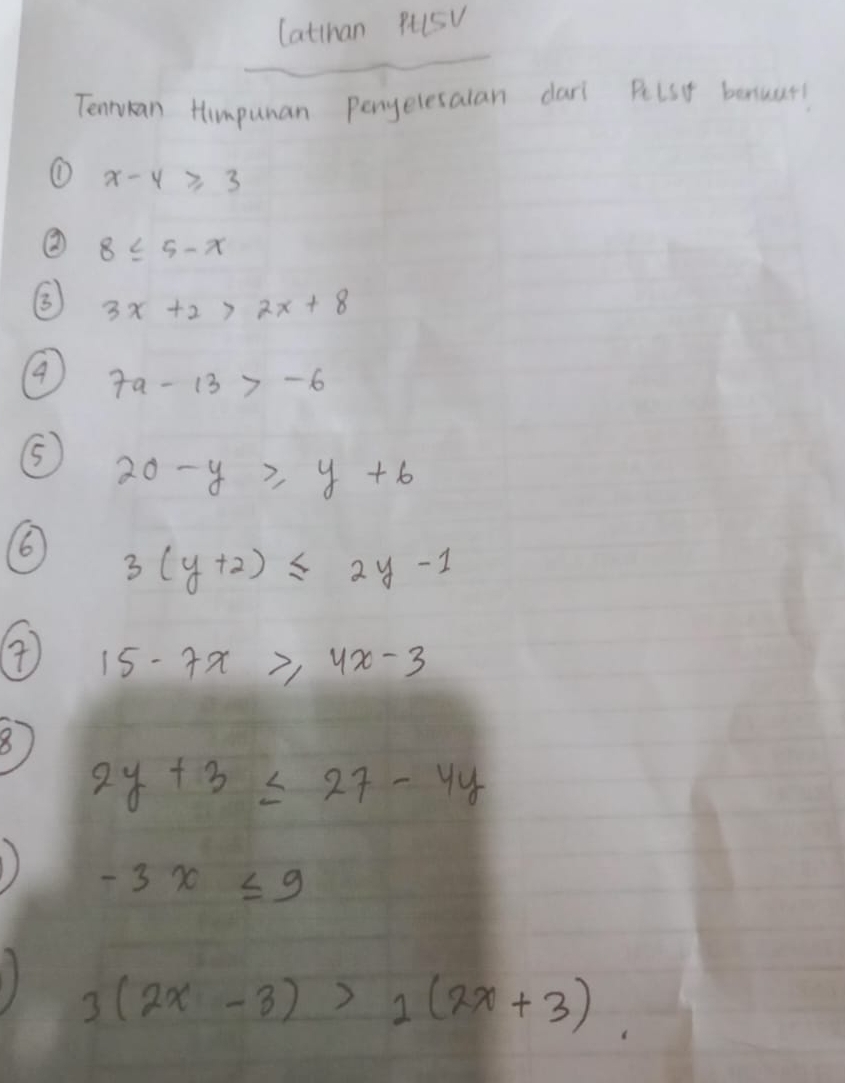 Latihan PtLSV
Tentukan Himpunan Penyelesaian dari PtLSV berikut!
① x - 4 ≥ 3
② 8 ≤ 5 - x
③ 3x + 2 > 2x + 8
④ 7a - 13 > -6
⑤ 20 - y ≥ y + 6
⑥ 3(y+2) ≤ 2y - 1
⑦ 15 - 7x ≥ 4x - 3
⑧ 2y + 3 ≤ 27 - 4y
-3x ≤ 9
3(2x - 3) > (2x + 3).